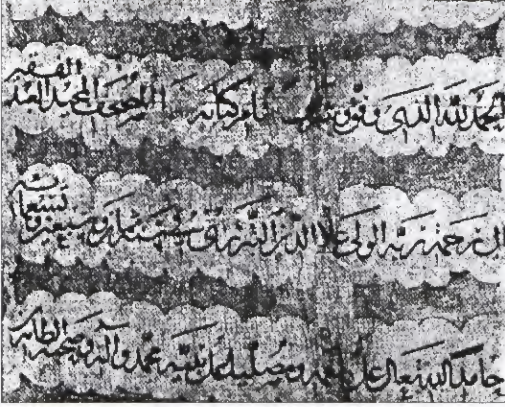 الحمد لله الذي وفق بإتمام كتابه المصحف المجيد العبد الفقير
الى رحمة ربه الولي علا الدين التبريزي سنة ثمان وسبعين وتسعمائة
حامدا لله تعالى على نعمه ومصليا على نبيه محمد وآله وصحبه الطاهرين